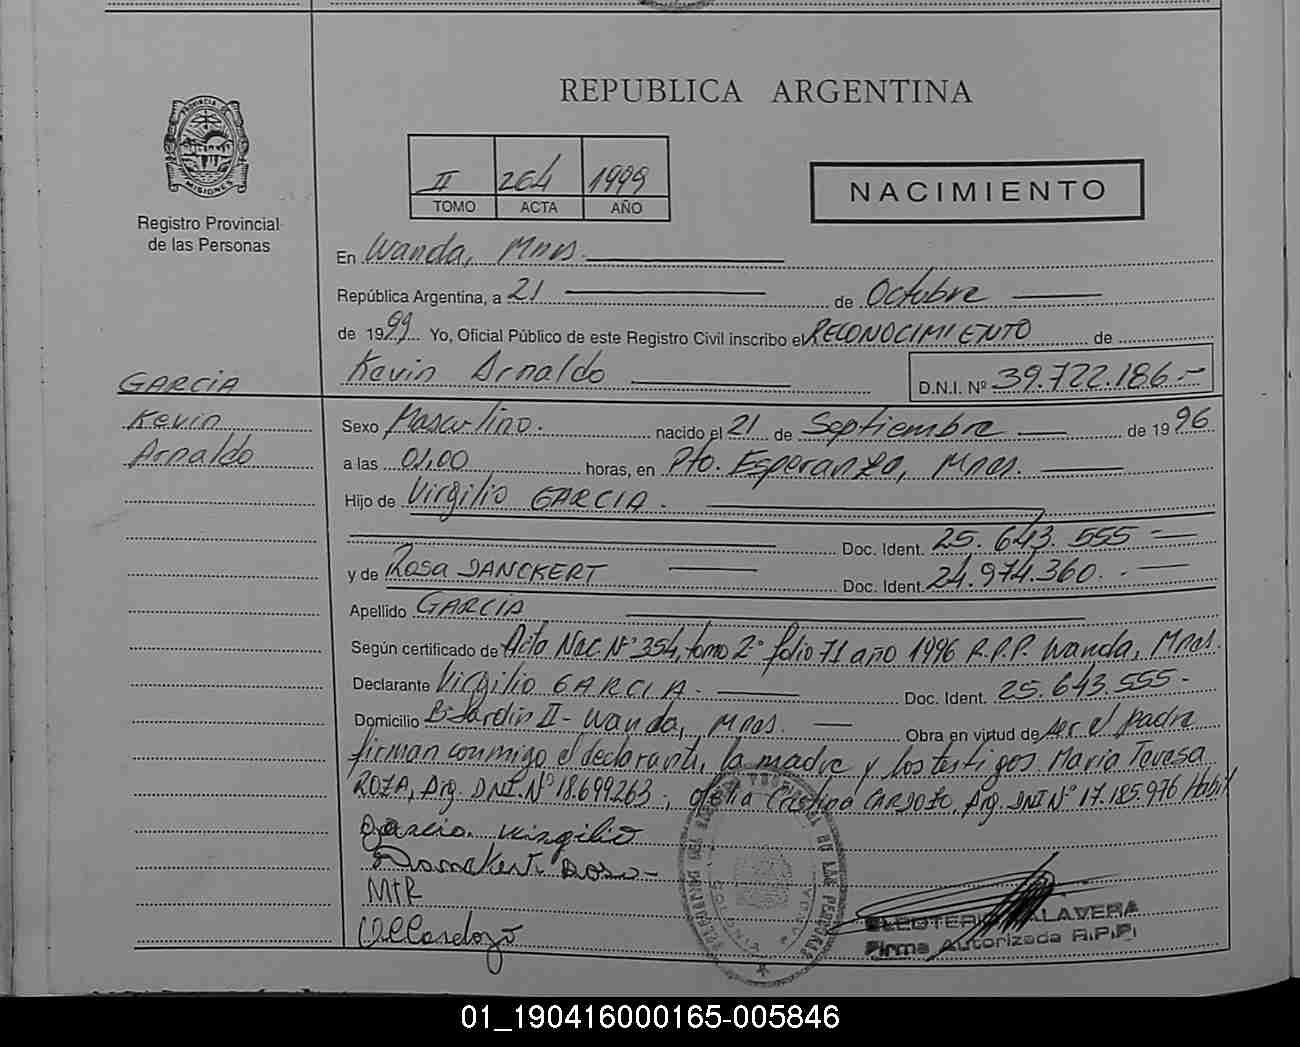 REPUBLICA ARGENTINA
PROVINCIA DE
MISIONES
Registro Provincial
de las Personas
II 264 1999
TOMO ACTA AÑO
NACIMIENTO
En Wanda, Mnes.
República Argentina, a 21 de Octubre
de 1999 Yo, Oficial Público de este Registro Civil inscribo el RECONOCIMIENTO de
Kevin Arnaldo D.N.I. Nº 39.722.186.-
GARCIA
Kevin
Arnaldo
Sexo Masculino. nacido el 21 de Septiembre de 1996
a las 01,00 horas, en Pto. Esperanza, Mnes.
Hijo de Virgilio GARCIA.
Doc. Ident. 25.643.555
y de Rosa DANCKERT Doc. Ident. 24.974.360.
Apellido GARCIA
Según certificado de Acta Nac Nº 354, tomo 2º folio 71 año 1996 R.P.P. Wanda, Mnes.
Declarante Virgilio GARCIA. Doc. Ident. 25.643.555-
Domicilio Bº Jardin II - Wanda, Mnes. Obra en virtud de ser el padre
firman conmigo el declarante, la madre y los testigos Maria Teresa
ROZA, Arg. DNI. Nº 18.699263; Cristina CARDOZO, Arg. DNI Nº 17.185.976 Habil
Garcia Virgilio
Danckert Rosa
MTR
Cardozo
TALAVERA
Firma Autorizada R.P.P.
WANDA
01_190416000165-005846